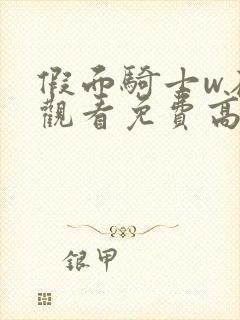 假面騎士w.
觀看免費高
銀甲